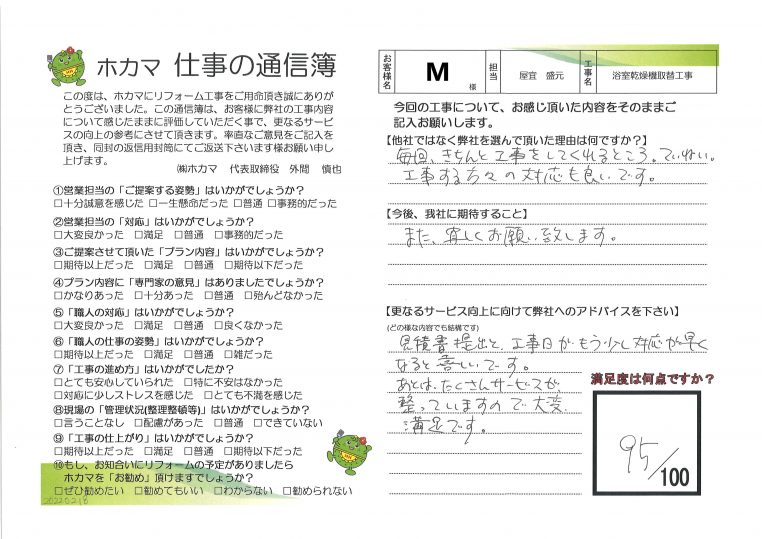 ホカマ 仕事の通信簿
この度は、ホカマにリフォーム工事をご用命頂き誠にありが
とうございました。この通信簿は、お客様に弊社の工事内容
について感じたままに評価していただく事で、更なるサービ
スの向上の参考にさせて頂きます。率直なご意見をご記入を
頂き、同封の返信用封筒にてご返送下さいます様お願い申し
上げます。
㈱ホカマ 代表取締役 外間 慎也
①営業担当の「ご提案する姿勢」はいかがでしょうか?
□十分誠意を感じた □一生懸命だった □普通 □事務的だった
②営業担当の「対応」はいかがでしょうか?
□大変良かった □満足 □普通 □事務的だった
③ご提案させて頂いた「プラン内容」はいかがでしょうか?
□期待以上だった □満足 □普通 □期待以下だった
④プラン内容に「専門家の意見」はありましたでしょうか?
□かなりあった □十分あった □普通 □殆んどなかった
⑤「職人の対応」はいかがでしょうか?
□大変良かった □満足 □普通 □良くなかった
⑥「職人の仕事の姿勢」はいかがでしょうか?
□期待以上だった □満足 □普通 □雑だった
⑦「工事の進め方」はいかがでしたか?
□とても安心していられた □特に不安はなかった
□対応に少しストレスを感じた □とても不満を感じた
⑧現場の「管理状況(整理整頓等)」はいかがでしょうか?
□言うことなし □配慮があった □普通 □できていない
⑨「工事の仕上がり」はいかがでしょうか?
□期待以上だった □満足 □普通 □期待以下だった
⑩もし、お知合いにリフォームの予定がありましたら
ホカマを「お勧め」頂けますでしょうか?
□ぜひ勧めたい □勧めてもいい □わからない □勧められない
お客様名 M 様 担当 屋宜 盛元 工事名 浴室乾燥機取替工事
今回の工事について、お感じ頂いた内容をそのままご
記入お願いします。
【他社ではなく弊社を選んで頂いた理由は何ですか?】
毎回、きちんと工事をしてくれるところ。ていねい。
工事する方々の対応も良いです。
【今後、我社に期待すること】
また、宜しくお願い致します。
【更なるサービス向上に向けて弊社へのアドバイスを下さい】
(どの様な内容でも結構です)
見積書提出と、工事日が、もう少し対応が早く
なると喜しいです。
あとは、たくさんサービスが、
整っていますので大変
満足です。
満足度は何点ですか?
95/100